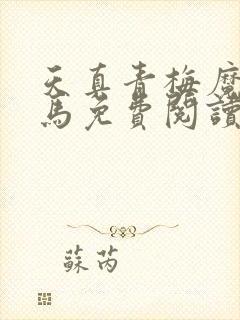 天真青梅魔
馬免費閱讀
蘇芮